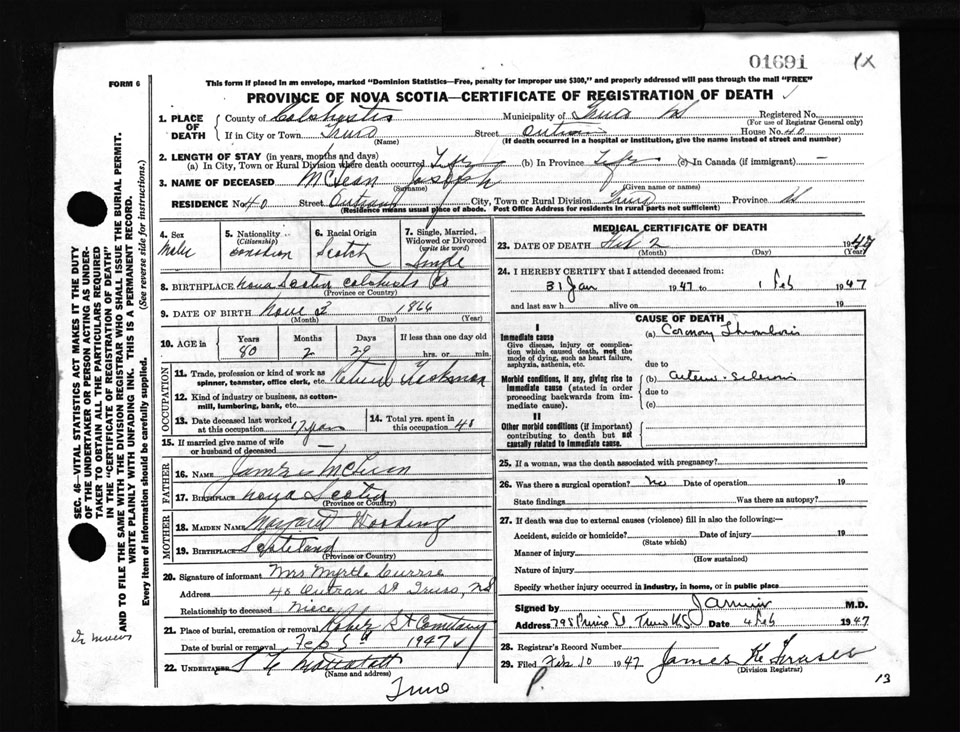 01691
1X
FORM 6
This form if placed in an envelope, marked "Dominion Statistics—Free, penalty for improper use $300," and properly addressed will pass through the mail "FREE"
PROVINCE OF NOVA SCOTIA—CERTIFICATE OF REGISTRATION OF DEATH
1. PLACE OF DEATH
County of Colchester Municipality of Truro NS Registered No.
(For use of Registrar General only)
If in City or Town Truro Street Outram House No. 40
(Name) (If death occurred in a hospital or institution, give the name instead of street and number)
2. LENGTH OF STAY (in years, months and days)
(a) In City, Town or Rural Division where death occurred Life (b) In Province Life (c) In Canada (if immigrant) —
3. NAME OF DECEASED McLean Joseph
(Surname) (Given name or names)
RESIDENCE No. 40 Street Outram City, Town or Rural Division Truro Province NS
(Residence means usual place of abode. Post Office Address for residents in rural parts not sufficient)
4. Sex
Male
5. Nationality
(Citizenship)
Canadian
6. Racial Origin
Scotch
7. Single, Married, Widowed or Divorced
(write the word)
Single
8. BIRTHPLACE Nova Scotia Colchester Co
(Province or Country)
9. DATE OF BIRTH Nove 3 1866
(Month) (Day) (Year)
10. AGE in
Years Months Days If less than one day old
80 2 29 hrs. or min.
OCCUPATION
11. Trade, profession or kind of work as spinner, teamster, office clerk, etc. Retired Trackman
12. Kind of industry or business, as cotton-mill, lumbering, bank, etc.
13. Date deceased last worked at this occupation 17 years
14. Total yrs. spent in this occupation 41
15. If married give name of wife or husband of deceased —
FATHER
16. NAME James McLean
17. BIRTHPLACE Nova Scotia
(Province or Country)
MOTHER
18. MAIDEN NAME Margaret
19. BIRTHPLACE Scotteland
(Province or Country)
20. Signature of informant Mrs Myrtle Currie
Address 40 Outram St Truro, NS
Relationship to deceased Niece
21. Place of burial, cremation or removal Robie St Cemetery
Date of burial or removal Feb 5th 1947
22. UNDERTAKER Mattatall
(Name and address)
Truro
MEDICAL CERTIFICATE OF DEATH
23. DATE OF DEATH Feb 2 1947
(Month) (Day) (Year)
24. I HEREBY CERTIFY that I attended deceased from:
31 Jan 1947 to 1 Feb 1947
and last saw h alive on 19
CAUSE OF DEATH
I
Immediate cause
Give disease, injury or complication which caused death, not the mode of dying, such as heart failure, asphyxia, asthenia, etc.
(a) Coronary Thrombosis
due to
Morbid conditions, if any, giving rise to immediate cause (stated in order proceeding backwards from immediate cause).
(b) arterio-sclerosis
due to
(c)
II
Other morbid conditions (if important) contributing to death but not causally related to immediate cause.
25. If a woman, was the death associated with pregnancy?
26. Was there a surgical operation? no Date of operation 19
State findings Was there an autopsy?
27. If death was due to external causes (violence) fill in also the following:—
Accident, suicide or homicide? Date of injury 19
(State which)
Manner of injury
(How sustained)
Nature of injury
Specify whether injury occurred in industry, in home, or in public place
Signed by M.D.
Address 798 Prince St. Truro NS Date 4 Feb 1947
28. Registrar's Record Number
29. Filed Feb 10 1947 James K Fraser
(Division Registrar)
P. 13
SEC. 46—VITAL STATISTICS ACT MAKES IT THE DUTY
OF THE UNDERTAKER OR PERSON ACTING AS UNDER-
TAKER TO OBTAIN ALL THE PARTICULARS REQUIRED
IN THE "CERTIFICATE OF REGISTRATION OF DEATH"
AND TO FILE THE SAME WITH THE DIVISION REGISTRAR WHO SHALL ISSUE THE BURIAL PERMIT.
WRITE PLAINLY WITH UNFADING INK. THIS IS A PERMANENT RECORD.
Every item of information should be carefully supplied. (See reverse side for instructions.)